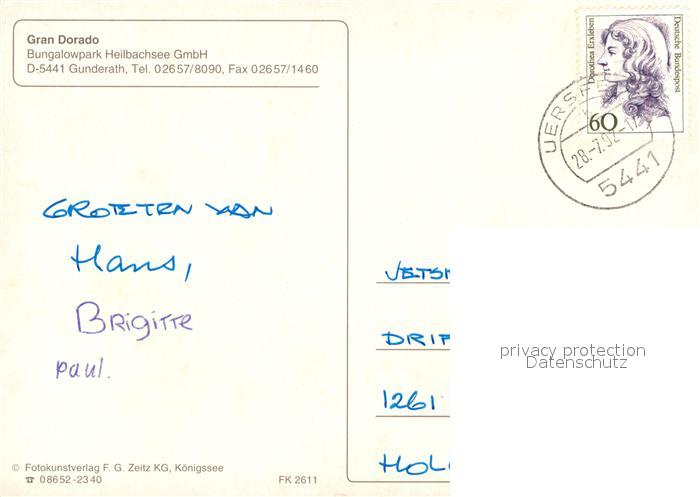 Gran Dorado
Bungalowpark Heilbachsee GmbH
D-5441 Gunderath, Tel. 02657/8090, Fax 02657/1460
Dorothea Erxleben
Deutsche Bundespost
60
28.-7.92
5441
GROETEN VAN
Hans,
Brigitte
paul.
DRIF
1261
HOLL
privacy protection
Datenschutz
© Fotokunstverlag F. G. Zeitz KG, Königssee
☎ 08652-2340
FK 2611